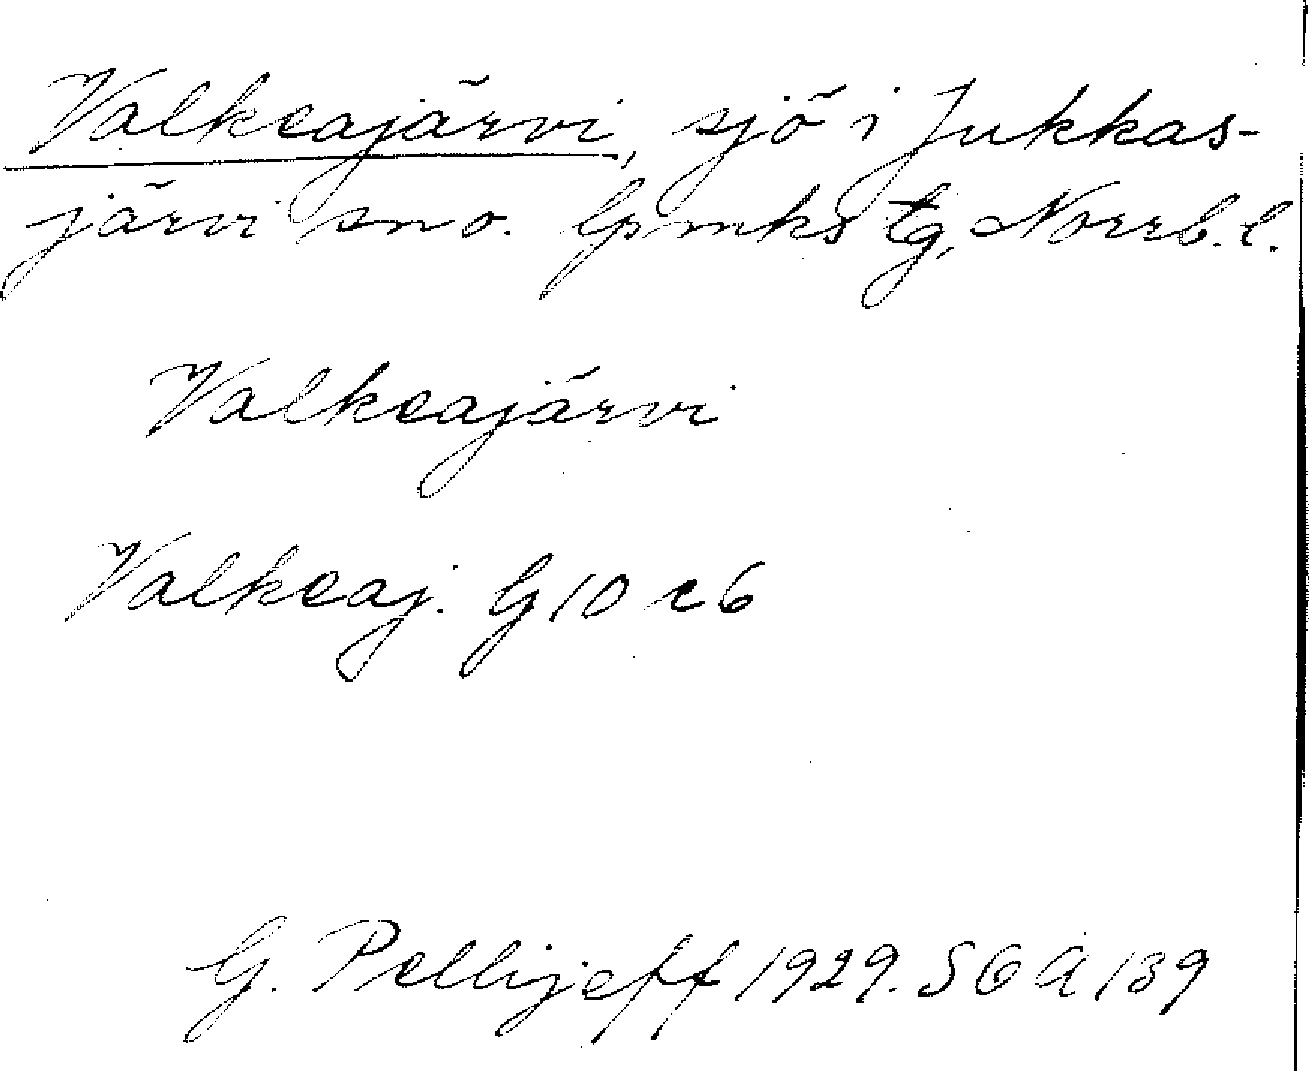 Valkeajärvi, sjö i Jukkas-
järvi sno. lpmks tg, Norrb. l.
Valkeajärvi
Valkeaj. G 10 c 6
G. Pellijeff 1929. SOA 139